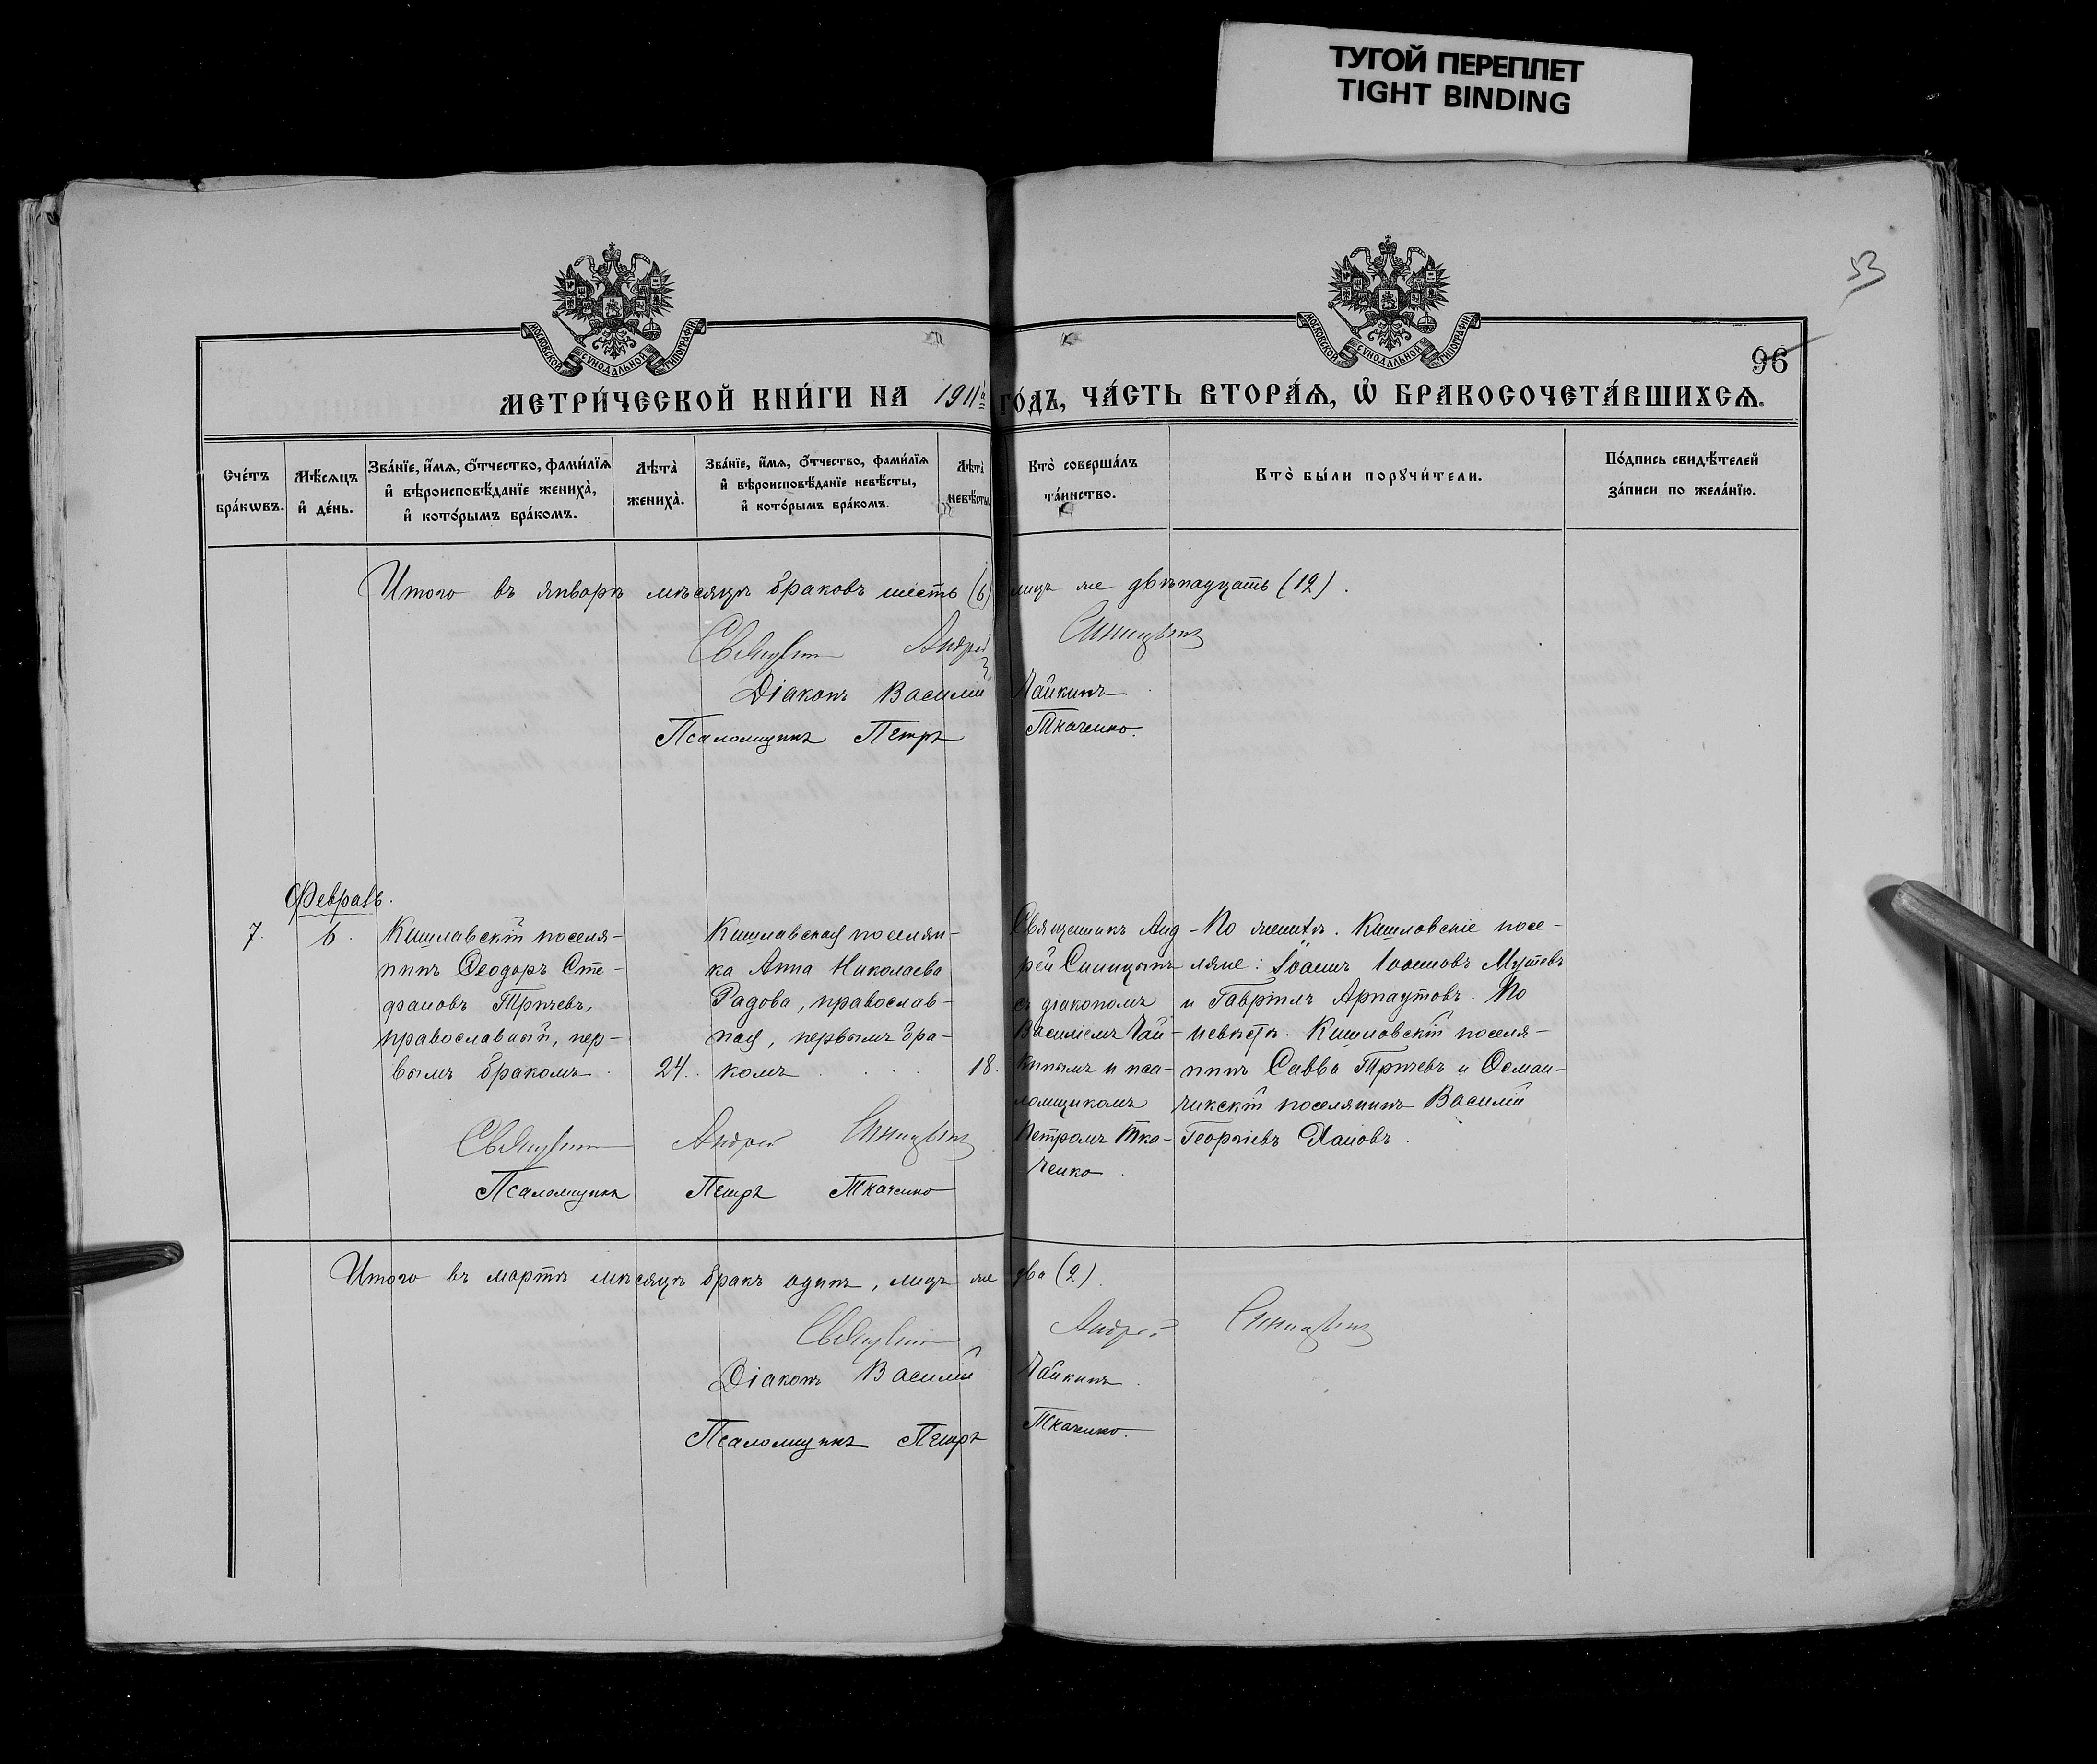 ТУГОЙ ПЕРЕПЛЕТ
TIGHT BINDING
53
96
МОСКОВСКОЙ СѴНОДАЛЬНОЙ ТИПОГРАФІИ
МОСКОВСКОЙ СѴНОДАЛЬНОЙ ТИПОГРАФІИ
МЕТРИ́ЧЕСКОЙ КНИ́ГИ НА 1911й ГО́ДЪ, ЧА́СТЬ ВТОРА́Ѧ, Ѡ҆ БРАКОСОЧЕТА́ВШИХСѦ.
Сче́тъ
бра́кѡвъ.
Мѣ́сѧцъ
и҆ де́нь.
Зва́нїе, и҆́мѧ, ѻ҆́тчество, фами́лїѧ
и҆ вѣроисповѣ́данїе жениха̀,
и҆ кото́рымъ бра́комъ.
Лѣта̀
жениха̀.
Зва́нїе, и҆́мѧ, ѻ҆́тчество, фами́лїѧ
и҆ вѣроисповѣ́данїе невѣ́сты,
и҆ кото́рымъ бра́комъ.
Лѣта̀
невѣ́сты.
Кто̀ соверша́лъ
та́инство.
Кто̀ бы́ли порꙋчи́тели.
По́дпись свидѣ́телей
за́писи по жела́нїю.
Итого въ январѣ мѣсяцѣ браковъ шесть (6) лицъ же двѣнадцать (12).
Священникъ Андрей Синицынъ
Діаконъ Василій Чайкинъ
Псаломщикъ Петръ Ткаченко.
Февраль.
7. 6.
Кишлавскій поселя-
нинъ Ѳеодоръ Сте-
фановъ Тричевъ,
православный, пер-
вымъ бракомъ 24.
Кишлавская поселян-
ка Анна Николаева
Радова, православ-
ная, первымъ бра-
комъ 18.
Священникъ Анд-
рей Синицынъ
съ діакономъ
Василіемъ Чай-
кинымъ и пса-
ломщикомъ
Петромъ Тка-
ченко.
По женихѣ. Кишловскіе посе-
ляне: Іоаннъ Іоанновъ Мутевъ
и Гавріилъ Арнаутовъ. По
невѣстѣ. Кишловскій поселя-
нинъ Савва Тричевъ и Осман-
чикскій поселянинъ Василій
Георгіевъ Хановъ.
Священникъ Андрей Синицынъ
Псаломщикъ Петръ Ткаченко
Итого въ мартѣ мѣсяцѣ бракъ одинъ, лицъ же два (2).
Священникъ Андрей Синицынъ
Діаконъ Василій Чайкинъ.
Псаломщикъ Петръ Ткаченко.